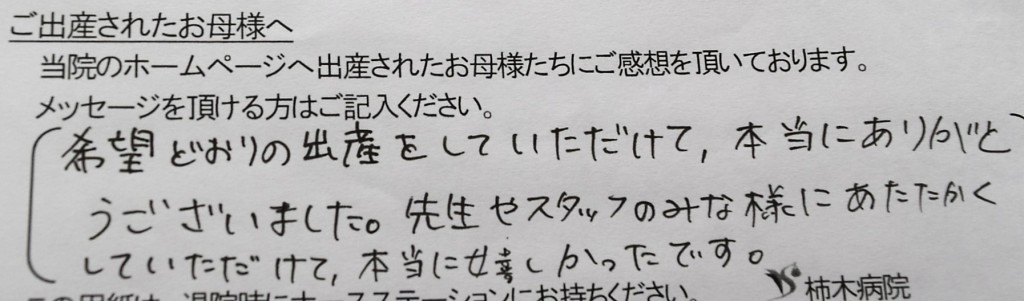 ご出産されたお母様へ
当院のホームページへ出産されたお母様たちにご感想を頂いております。
メッセージを頂ける方はご記入ください。
希望どおりの出産をしていただけて,本当にありがと
うございました。先生やスタッフのみな様にあたたかく
していただけて,本当に嬉しかったです。
この用紙は、退院時にナースステーションにお持ちください。
柿木病院